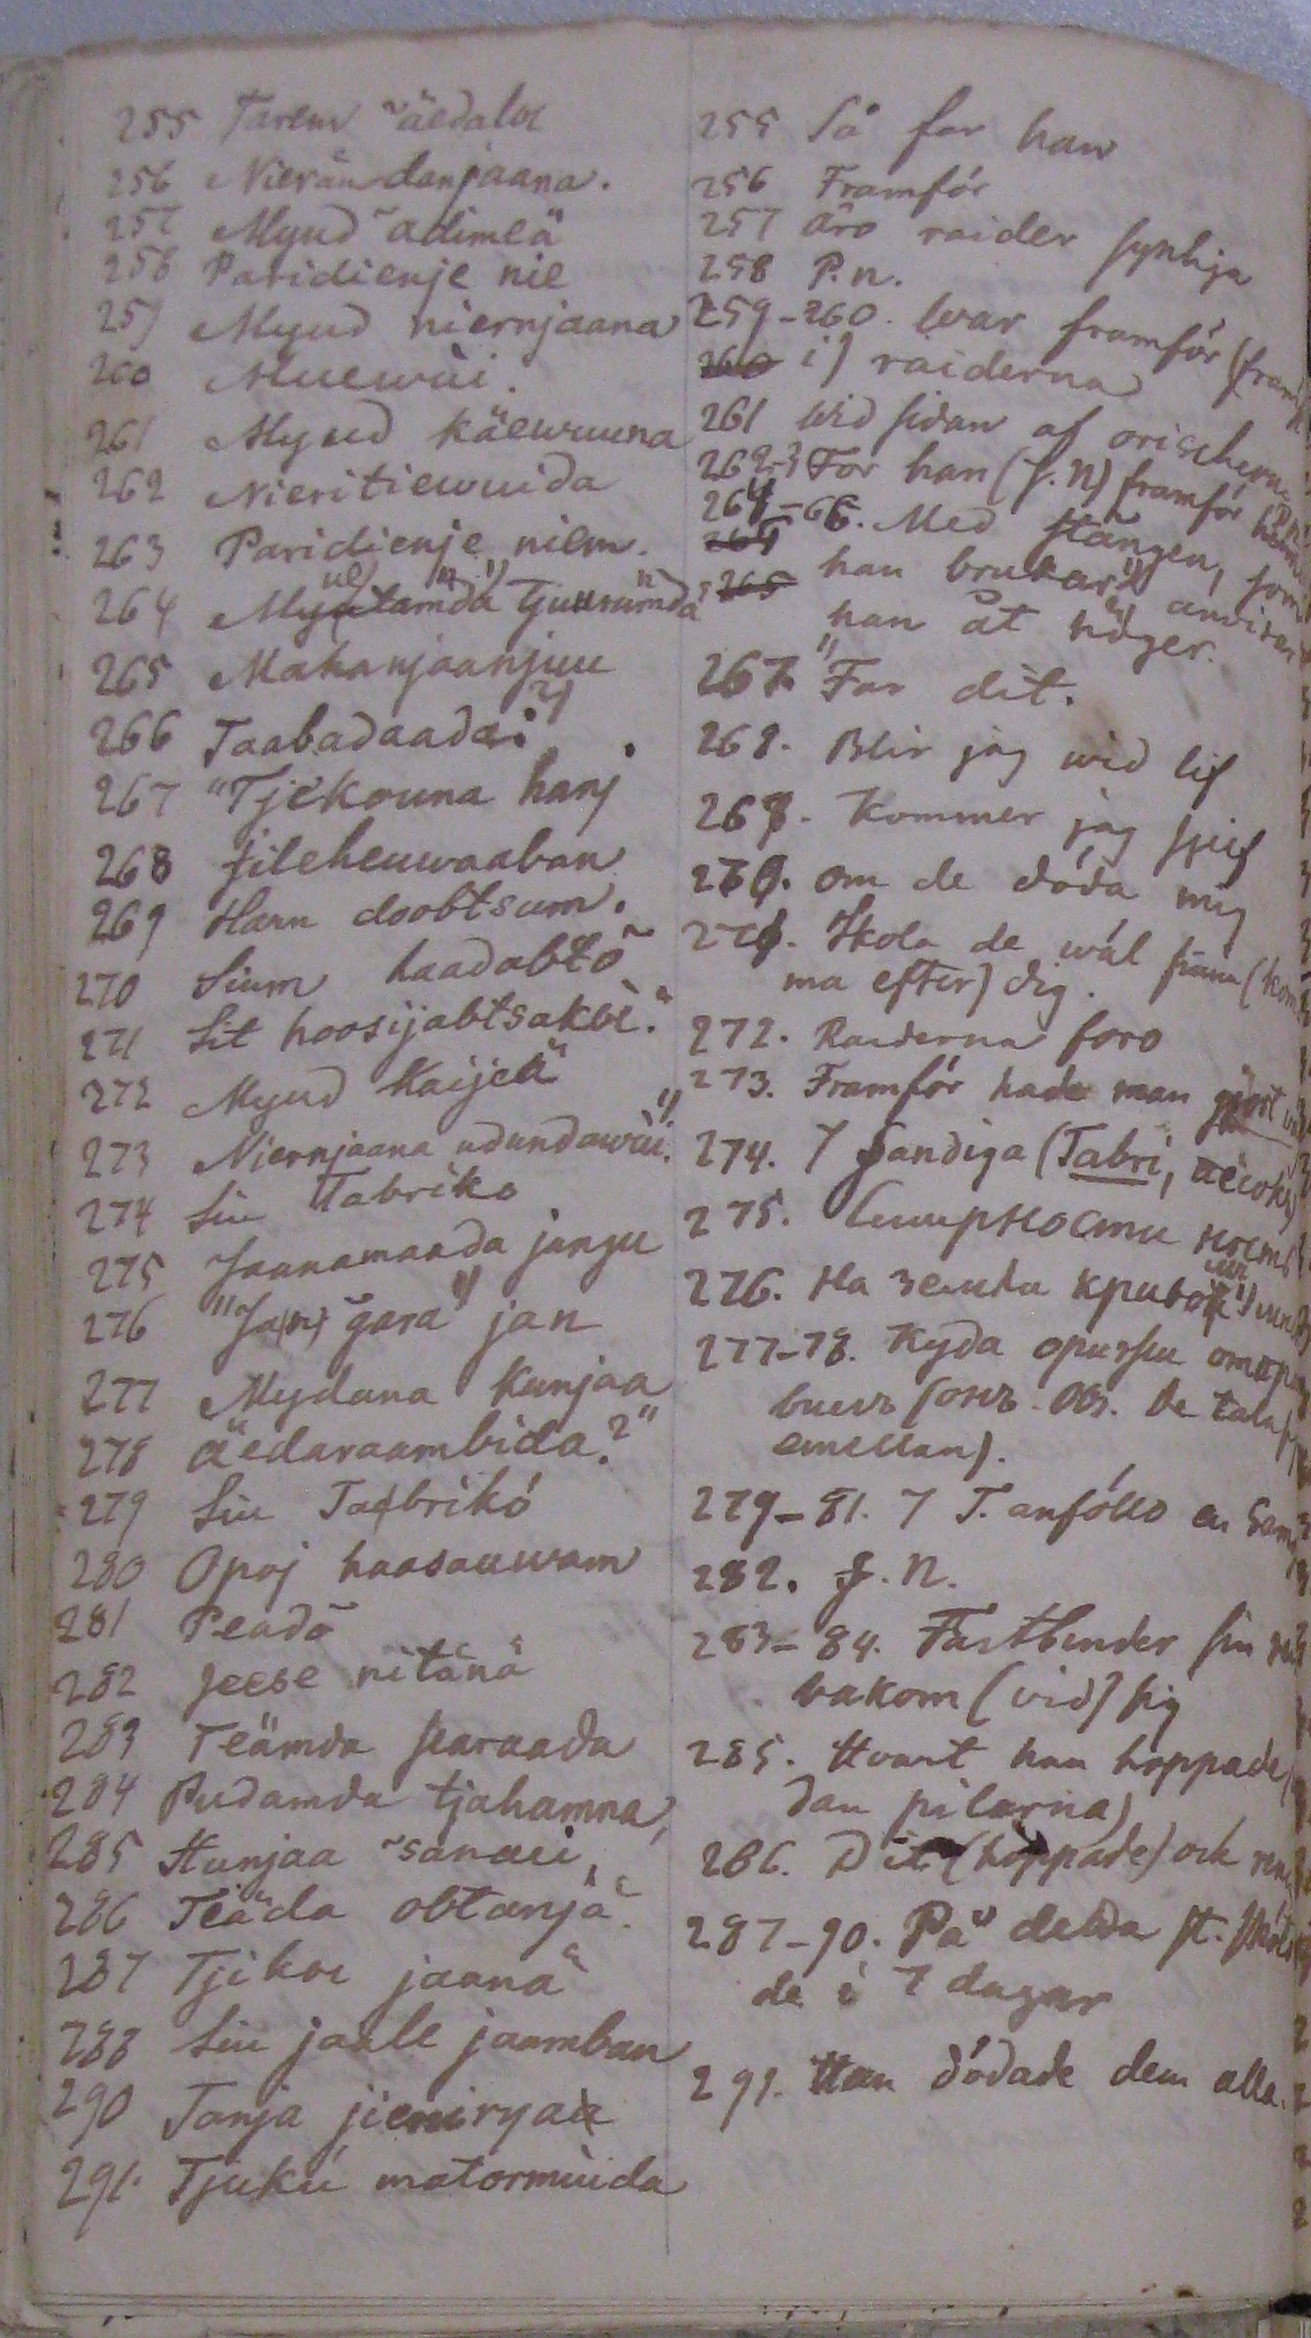 255 Tarem äedaloe
256 Nierän danjaana.
257 Myud adimeä
258 Paridienje nie
259 Myud niernjaana
260 Muewùi.
261 Myud käewuuna
262 Nieritiewuida
263 Paridienje niem.
264 Tjuurumda
265 Mahanjaanjuu
266 Taabadaada:
267 "Tjekouna hanj
268 jileheuwaaban
269 Harn doobtsum.
270 Sium haadabtõ
271 Sit hoosijabtsakoe."
272 Myud Kaijeä
273 Niernjaana udundawùi.
274 Siu Tabriko
275 Jaanamaada jangu
276 "Ja(n) gara" jan
277 Mydana Kunjaa
278 äedaraambida?"
279 Siu Tabrikó
280 Opoj haasauwam
281 Peadõ
282 jeese nitänä
283 Teämda searaada
284 Pudamda tjahamna,
285 Hunjaa sanæi,
286 Teäda obtanjä.
287 Tjikoe jaanä
288 Siu jaale jaamban
290 Tanja jieniryaa
291. Tjukú matormùida
255 Så far han
256 Framför
257 äro raider synliga
258 P.n.
259-260. War framför
260 i) raiderna
261 Wid sidan af
262-3 For han (J.N) framför
264-66. Med stången, som
265 han brukar
han åt höger.
267. "Far dit.
268. Blir jag wid lif
269. Kommer jag sjelf
270. om de döda mig
271. Skola de wäl finna
ma efter) dig.
272. Raiderna foro
273. Framför hade man gjort
274. 7 Sandiga (Tabri,
275.
276. На земли
277-78. Куда
De tala
emellan).
279-81. 7 T. anföllo en
282. J.N.
283-84. Fastbinder sin
bakom (vid) sig
285. Hvart han hoppade
dan pilarna)
286. Dit (hoppade) och
287-90. På detta st.
de i 7 dagar
291. Han dödade dem alla.